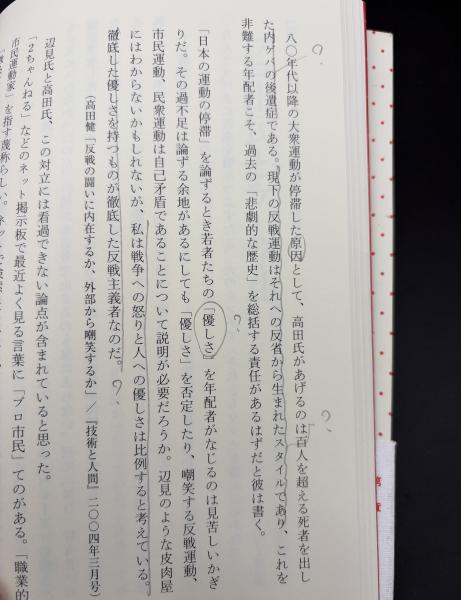 八〇年代以降の大衆運動が停滞した原因として、高田氏があげるのは百人を超える死者を出し
た内ゲバの後遺症である。現下の反戦運動はそれへの反省から生まれたスタイルであり、これを
非難する年配者こそ、過去の「悲劇的な歴史」を総括する責任があるはずだと彼は書く。
「日本の運動の停滞」を論ずるとき若者たちの「優しさ」を年配者がなじるのは見苦しいかぎ
りだ。その過不足は論ずる余地があるにしても「優しさ」を否定したり、嘲笑する反戦運動、
市民運動、民衆運動は自己矛盾であることについて説明が必要だろうか。辺見のような皮肉屋
にはわからないかもしれないが、私は戦争への怒りと人への優しさは比例すると考えている。
徹底した優しさを持つものが徹底した反戦主義者なのだ。
(高田健「反戦の闘いに内在するか、外部から嘲笑するか」/『技術と人間』二〇〇四年三月号)
辺見氏と高田氏、この対立には看過できない論点が含まれていると思った。
「2ちゃんねる」などのネット掲示板で最近よく見る言葉に「プロ市民」てのがある。「職業的
市民運動家」を指す蔑称らしい。
?
?
?
?
第
章